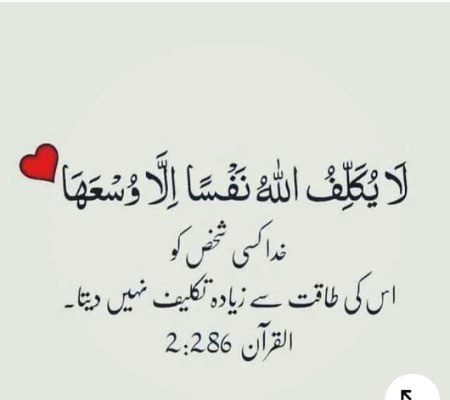 لَا يُكَلِّفُ اللّٰهُ نَفْسًا اِلَّا وُسْعَهَا
خدا کسی شخص کو
اس کی طاقت سے زیادہ تکلیف نہیں دیتا۔
القرآن 2:286